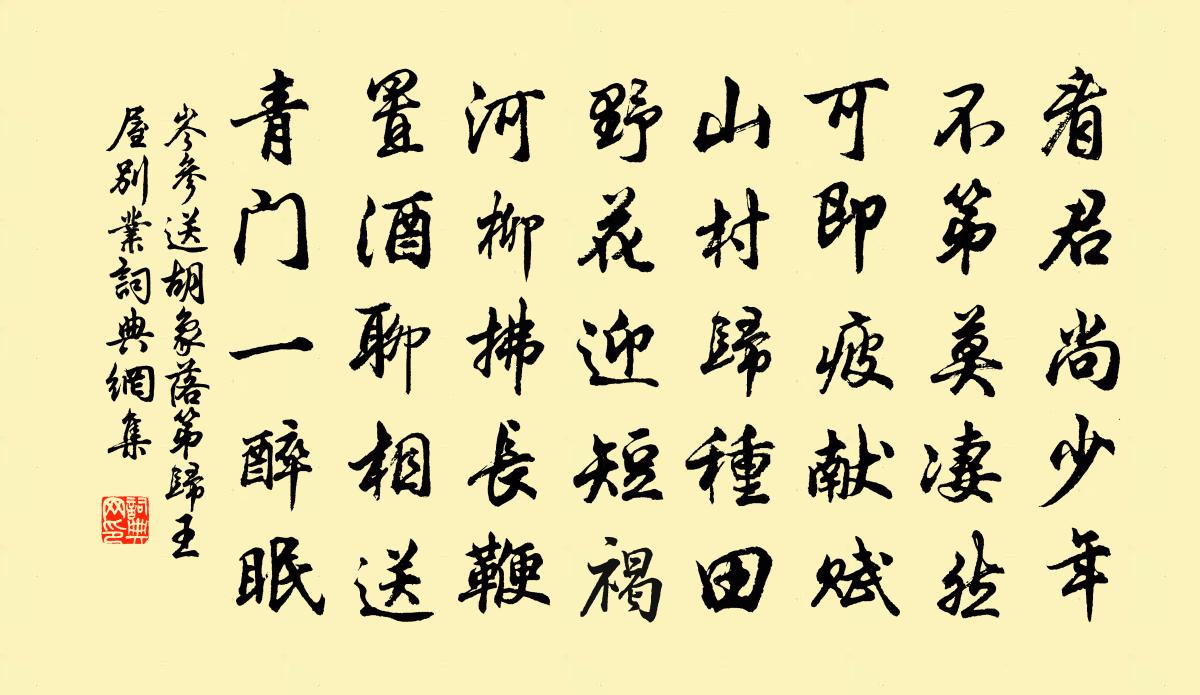 看君尚少年
不第莫凄然
可即疲献赋
山村歸種田
野花迎短褐
河柳拂長鞭
置酒聊相送
青门一醉眠
岑參送胡象落第歸王
屋别業詞典網集
詞典网印